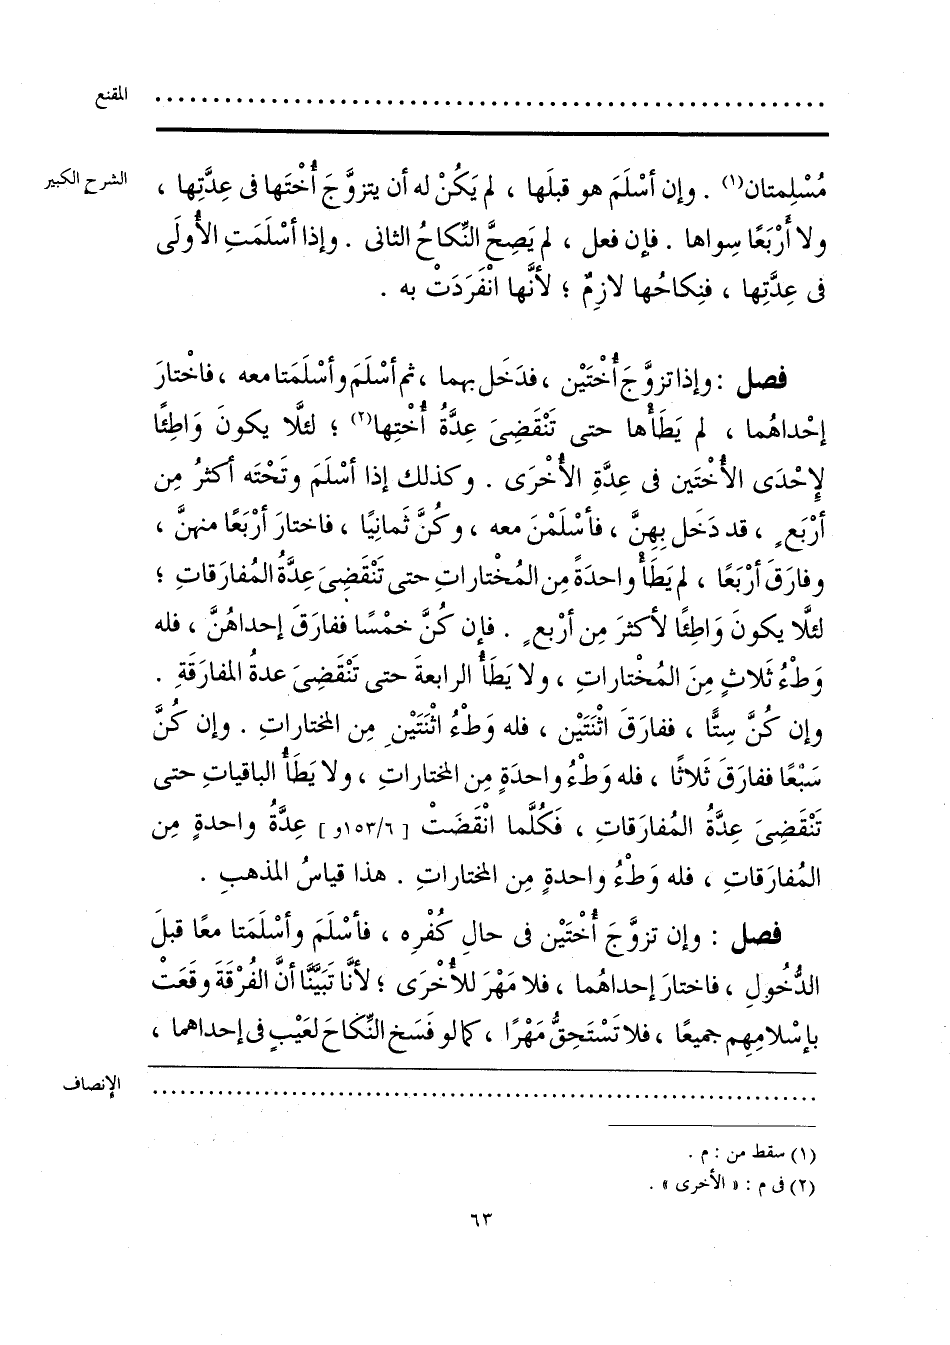 المقنع ......................................................
الشرح الكبير
مُسْلِمتان(١) . وإن أسْلَمَ هو قبلَها ، لم يَكُنْ له أن يتزوَّجَ أُخْتَها فى عِدَّتِها ،
ولا أَرْبَعًا سِواها . فإن فعل ، لم يَصِحَّ النِّكاحُ الثانى . وإذا أسْلَمَتِ الأُولَى
فى عِدَّتِها ، فنِكاحُها لازِمٌ ؛ لأنَّها انْفَرَدَتْ به .
فصل : وإذا تزوَّجَ أُخْتَيْن ، فدَخَل بهما ، ثم أسْلَمَ وأسْلَمَتا معه ، فاخْتارَ
إحْداهُما ، لم يَطَأْها حتى تَنْقَضِىَ عِدَّةُ أُخْتِها(٢) ؛ لئلَّا يكونَ وَاطِئًا
لإِحْدَى الأُخْتَين فى عِدَّةِ الأُخْرَى . وكذلك إذا أسْلَمَ وتَحْتَه أكثرُ مِن
أرْبَعٍ ، قد دَخَل بِهِنَّ ، فأسْلَمْنَ معه ، وكُنَّ ثَمانِيًا ، فاختارَ أرْبَعًا منهنَّ ،
وفارَقَ أرْبَعًا ، لم يَطَأْ واحدةً مِن المُخْتاراتِ حتى تَنْقَضِىَ عِدَّةُ المُفارَقاتِ ؛
لئلَّا يكونَ وَاطِئًا لأكثرَ مِن أرْبعٍ . فإن كُنَّ خمْسًا ففارَقَ إحداهُنَّ ، فله
وَطْءُ ثَلاثٍ مِنَ المُخْتاراتِ ، ولا يَطَأُ الرابعةَ حتى تَنْقَضِىَ عدةُ المفارَقَةِ .
وإن كُنَّ سِتًّا ، ففارَقَ اثْنَتَيْن ، فله وَطْءُ اثْنَتَيْنِ مِن المختاراتِ . وإن كُنَّ
سَبْعًا ففارَقَ ثَلاثًا ، فله وَطْءُ واحدَةٍ مِن المختاراتِ ، ولا يَطَأُ الباقياتِ حتى
تَنْقَضِىَ عِدَّةُ المُفارَقاتِ ، فَكُلَّما انْقَضَتْ [ ١٥٣/٦و ] عِدَّةُ واحدةٍ مِن
المُفارَقاتِ ، فله وَطْءُ واحدةٍ مِن المختاراتِ . هذا قياسُ المذهبِ .
فصل : وإن تزوَّجَ أُخْتَيْن فى حالِ كُفْرِه ، فأسْلَمَ وأسْلَمَتا معًا قبلَ
الدُّخُولِ ، فاختارَ إحداهُما ، فلا مَهْرَ للأُخْرَى ؛ لأنَّا تَبَيَّنَّا أنَّ الفُرْقَةَ وقَعَتْ
بإسْلامِهِم جميعًا ، فلا تَسْتَحِقُّ مَهْرًا ، كما لو فَسَخ النِّكاحَ لعَيْبٍ فى إحداهما ،
الإنصاف ......................................................
(١) سقط من : م .
(٢) فى م : « الأخرى » .
٦٣